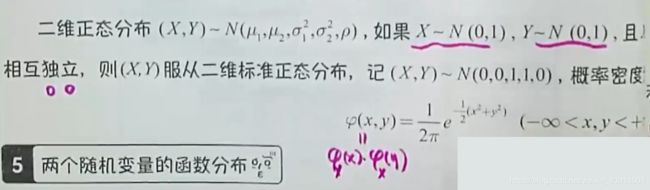 二维正态分布 (X,Y)~N(μ₁,μ₂,σ₁²,σ₂²,ρ),如果 X~N (0,1),Y~N (0,1),且
相互独立,则(X,Y)服从二维标准正态分布,记 (X,Y)~N(0,0,1,1,0),概率密度
φ(x,y)=\frac{1}{2π}e^{-\frac{1}{2}(x²+y²)} (-∞<x,y<+
φ_X(x)·φ_X(y)
5 两个随机变量的函数分布